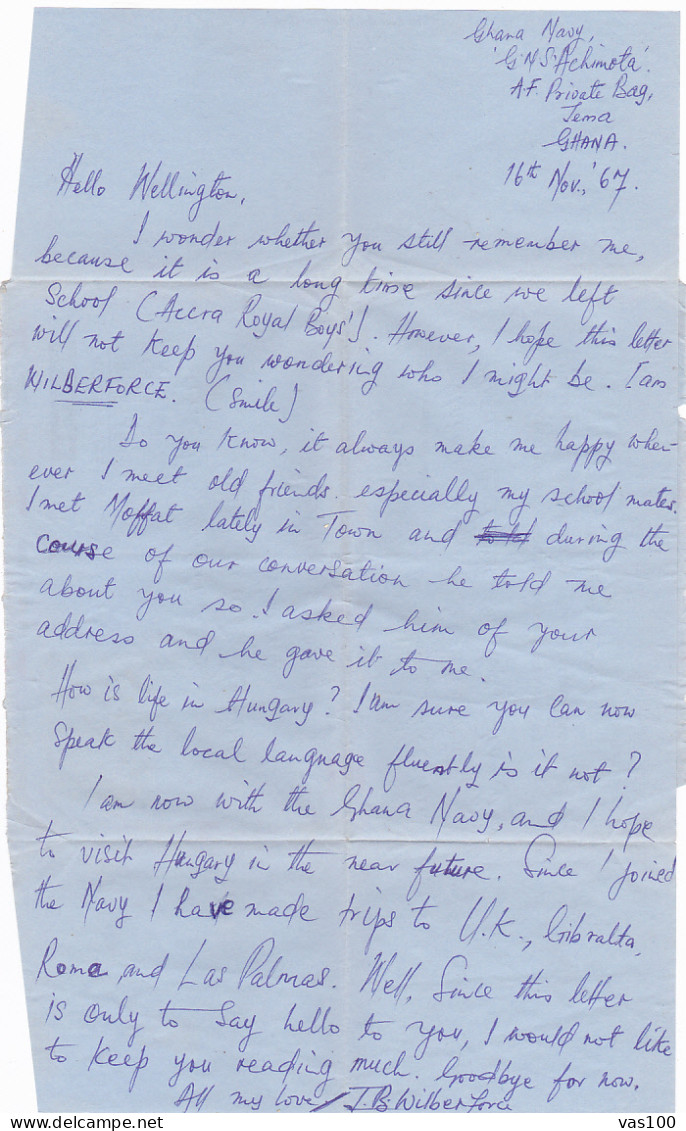 Ghana Navy,
'G.N.S. Achimota'.
A.F. Private Bag,
Tema
GHANA.
16th Nov., '67.
Hello Wellington,
I wonder whether you still remember me,
because it is a long time since we left
School (Accra Royal Boys'). However, I hope this letter
will not keep you wondering who I might be. I am
WILBERFORCE. (Smile)
Do you know, it always make me happy when-
ever I meet old friends especially my school mates.
I met Moffat lately in Town and told during the
course of our conversation he told me
about you so I asked him of your
address and he gave it to me.
How is life in Hungary? I am sure you can now
speak the local language fluently is it not?
I am now with the Ghana Navy, and I hope
to visit Hungary in the near future. Since I joined
the Navy I have made trips to U.K., Gibralta,
Roma, and Las Palmas. Well, Since this letter
is only to say hello to you, I would not like
to keep you reading much. Goodbye for now.
All my love / J.B. Wilberforce
vas100